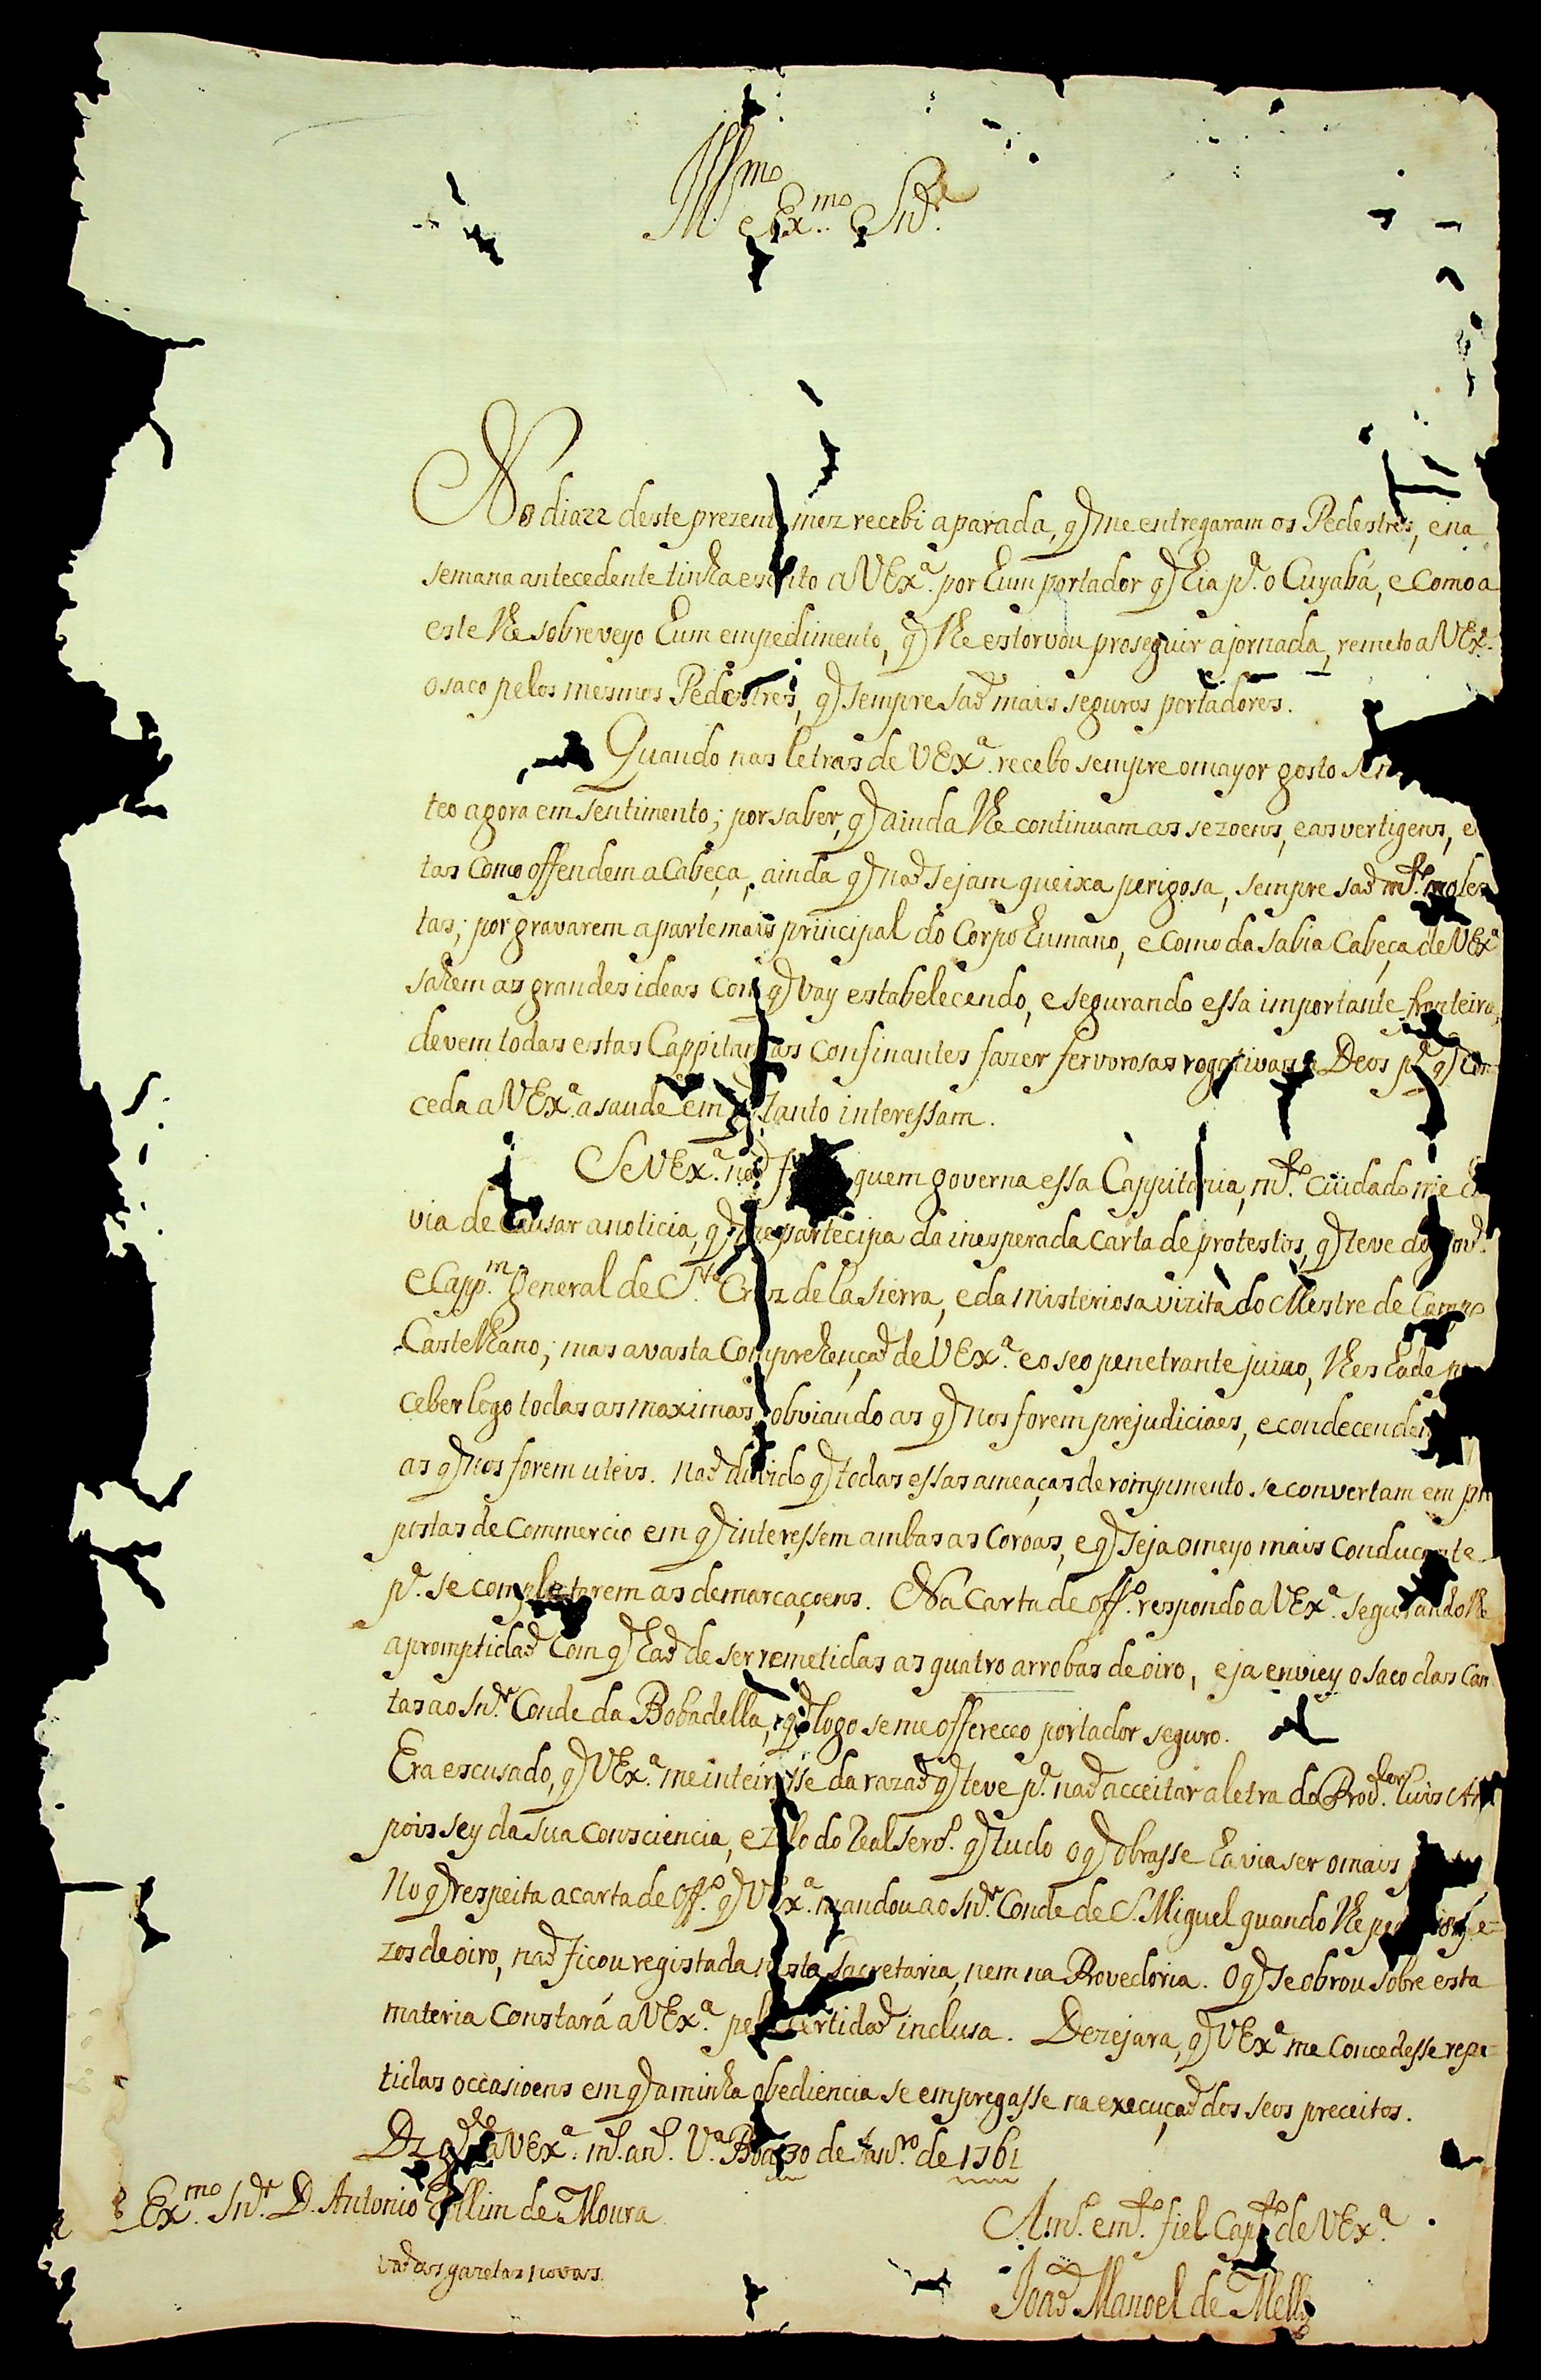 Ill.mo
e Ex.mo Snr.
No dia 22 deste prezente mez recebi a parada, q̃ me entregaram os Pedestres, e na
semana antecedente tinha escrito a VEx.a por hum portador q̃ hia p.a o Cuyabá, e como a
este lhe sobreveyo hum empedimento, q̃ lhe estorvou proseguir a jornada, remeto a VEx.a
o saco pelos mesmos Pedestres, q̃ sempre saõ mais seguros portadores.
Quando nas letras de VEx.a recebo sempre o mayor gosto
teo agora em sentimento; por saber, q̃ ainda lhe continuam as sezoens, e as vertigens, e
tas como offendem a Cabeça, ainda q̃ naõ sejam queixa perigosa, sempre saõ m.to moles
tas; por gravarem a parte mais principal do Corpo humano, e como da sabia Cabeça de VEx.a
sahem as grandes ideas com q̃ vay estabelecendo, e segurando essa importante fronteira,
devem todas estas Cappitanias confinantes fazer fervorosas rogativas a Deos p.a q̃ con=
ceda a VEx.a a saude em q̃ tanto interessam.
Se VEx.a naõ quem governa essa Cappitania, m.to cuidado me
via de causar a noticia, q̃ me partecipa da inesperada carta de protestos, q̃ teve do Gov.or
e Capp.m General de S.ta Cruz de la Sierra, e da misteriosa vizita do Mestre de Campo
Castelhano; mas a vasta Comprehençaõ de VEx.a e o seo penetrante juizo, lhes hade
ceber logo todas as maximas, obviando as q̃ nos forem prejudiciaes, e condecenden
as q̃ nos forem uteis. Naõ duvido q̃ todas essas ameaças de rompimento se convertam em pro
postas de Commercio em q̃ interessem ambas as Coroas, e q̃ seja o meyo mais conducente
p.a se completarem as demarcaçoens. Na Carta de off.o respondo a VEx.a segurandolhe
a promptidaõ com q̃ haõ de ser remetidas as quatro arrobas de oiro, e ja enviey o saco das Car
tas ao Snr. Conde da Bobadella, q̃ logo se me offereceo portador seguro.
Era escusado, q̃ VEx.a me inteirasse da razaõ q̃ teve p.a naõ acceitar a letra do Proved.or Luis
pois sey da sua consciencia, e zelo do Real Serv.o q̃ tudo o q̃ obrasse havia ser o mais
No q̃ respeita a carta de off.o q̃ VEx.a mandou ao Snr. Conde de S. Miguel quando lhe
zos de oiro, naõ ficou registada nesta Sacretaria, nem na Provedoria. O q̃ se obrou sobre esta
materia Constará a VEx.a pela certidaõ inclusa. Dezejara, q̃ VEx.a me concedesse repe=
tidas occasioens em q̃ a minha obediencia se empregasse na execuçaõ dos seos preceitos.
Ds g.de a VEx.a m.s an.s V.a Boa 30 de Janr.o de 1761
Ex.mo Snr. D. Antonio Rollim de Moura
Am.o e m.to fiel Capt.o de VEx.a
Vaõ as gazetas novas.
Joaõ Manoel de Mello